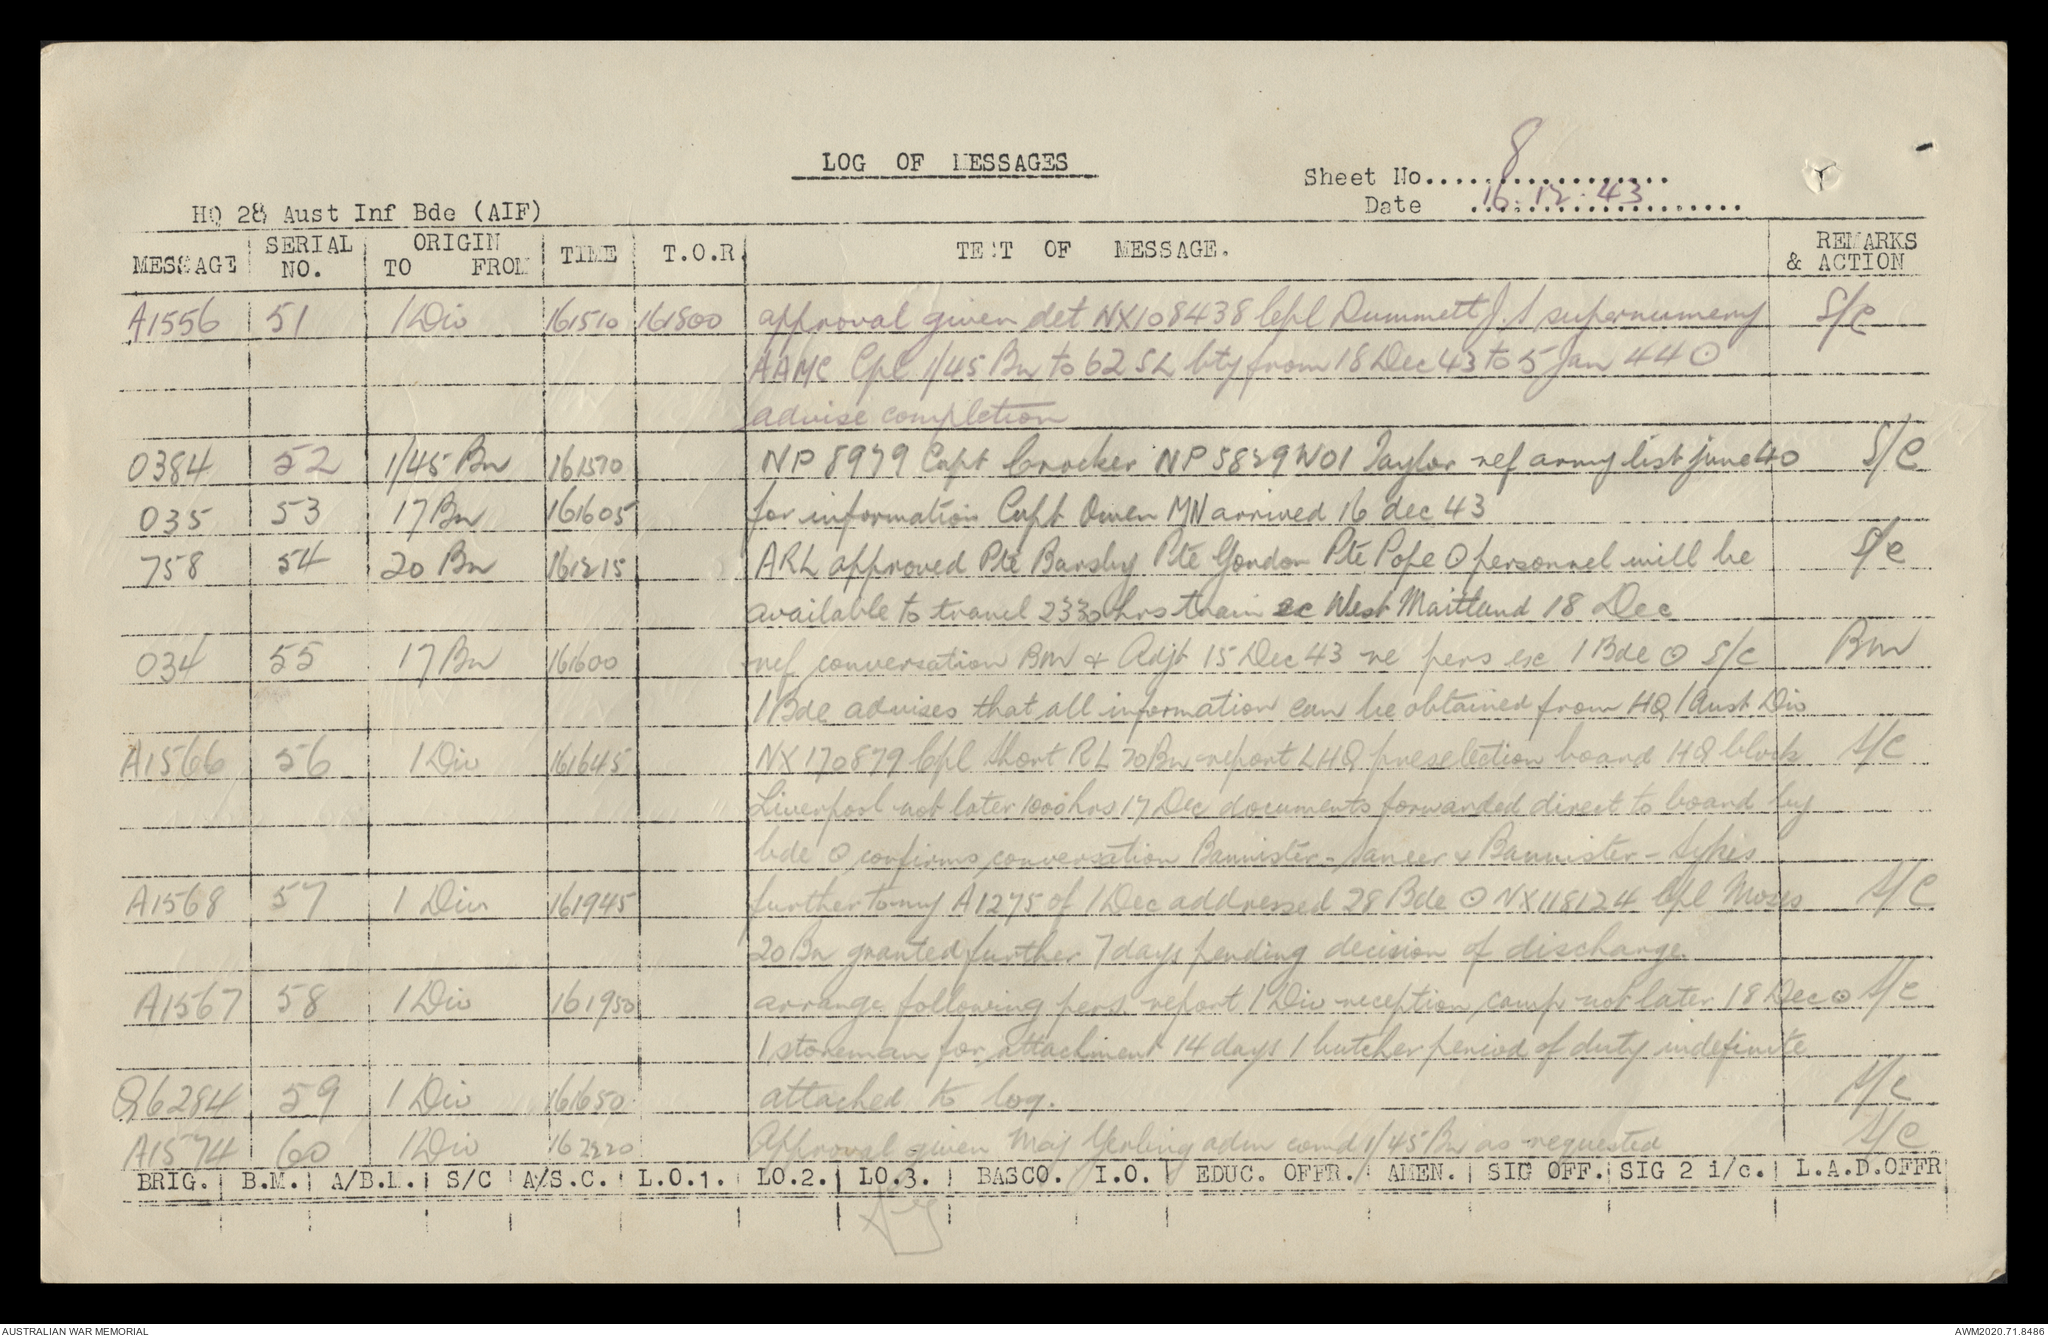 LOG OF MESSAGES
Sheet No. 8
Date 16.12.43
HQ 28 Aust Inf Bde (AIF)
MESSAGE | SERIAL NO. | ORIGIN TO FROM | TIME | T.O.R. | TEXT OF MESSAGE. | REMARKS & ACTION
A1556 51 1 Div 161510 161800 approval given det NX108438 Cpl Dummett J. supernumery S/C
AAMC Cpl 1/45 Bn to 62 SL bty from 18 Dec 43 to 5 Jan 44 ⊙
advise completion
0384 52 1/45 Bn NP 8979 Capt Crocker NP 5829 WO1 Taylor ref army list june 40 S/C
035 53 17 Bn 161605 for information Capt Owen MN arrived 16 dec 43
758 54 20 Bn 161215 ARL approved Pte Barsby Pte Gordon Pte Pope ⊙ personnel will be S/C
available to travel 2330 hrs train ex West Maitland 18 Dec
034 55 17 Bn 161600 ref conversation BM & Adjt 15 Dec 43 re pers ex 1 Bde ⊙ S/C BM
1 Bde advises that all information can be obtained from HQ 1 Aust Div
A1566 56 1 Div 161645 NX170879 Cpl Short RL 20 Bn report LHQ preselection board HQ block S/C
Liverpool not later 1000 hrs 17 Dec documents forwarded direct to board by
bde ⊙ confirms conversation Bannister - & Bannister - Sykes
A1568 57 1 Div 161945 further to my A1275 of 1 Dec addressed 28 Bde ⊙ NX118124 Cpl Moses S/C
20 Bn granted further 7 days pending decision of discharge.
A1567 58 1 Div 161950 arrange following pers report 1 Div reception camp not later 18 Dec ⊙ S/C
1 storeman for attachment 14 days 1 butcher period of duty indefinite
Q6284 59 1 Div 161650 attached to log. S/C
A1574 60 1 Div 162220 Approval given Maj adm comd 1/45 Bn as requested S/C
BRIG. | B.M. | A/B.M. | S/C | A/S.C. | L.O.1. | LO.2. | LO.3. | BASCO. | I.O. | EDUC. OFFR. | AMEN. | SIG OFF. | SIG 2 i/c. | L.A.D.OFFR
AUSTRALIAN WAR MEMORIAL
AWM2020.71.8486